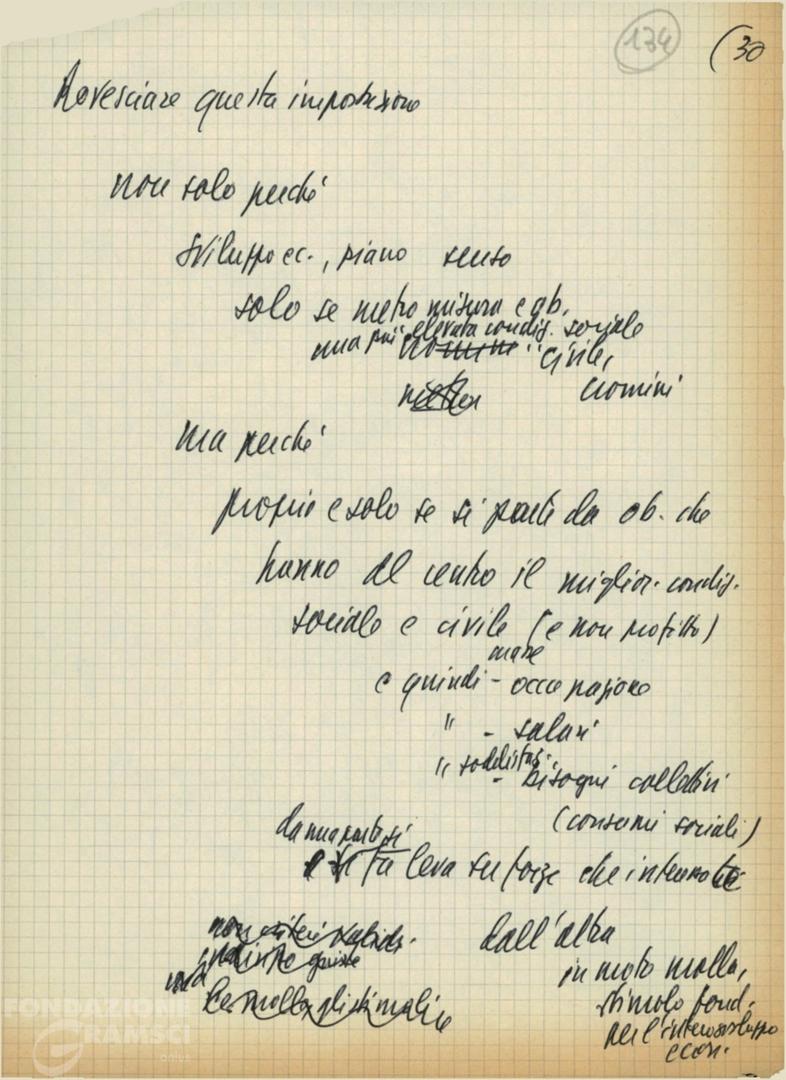 134
(30
Rovesciare questa impostazione
non solo perché
sviluppo ec., piano senso
solo se metro misura e ob.
una più elevata condiz. sociale
uomini " civile,
uomini
ma perché
proprio e solo se si parte da ob. che
hanno al centro il miglior. condiz.
sociale e civile (e non profitto)
mass
e quindi - occupazione
" - salari
" soddisfaz.
- bisogni collettivi
(consumi sociali)
da una parte si
si fa leva su forze che interessate
non criteri
dall'altra
in moto molla,
ma
le molle gli stimoli
stimolo fond.
per l'intero sviluppo
econ.
FONDAZIONE
GRAMSCI
onlus